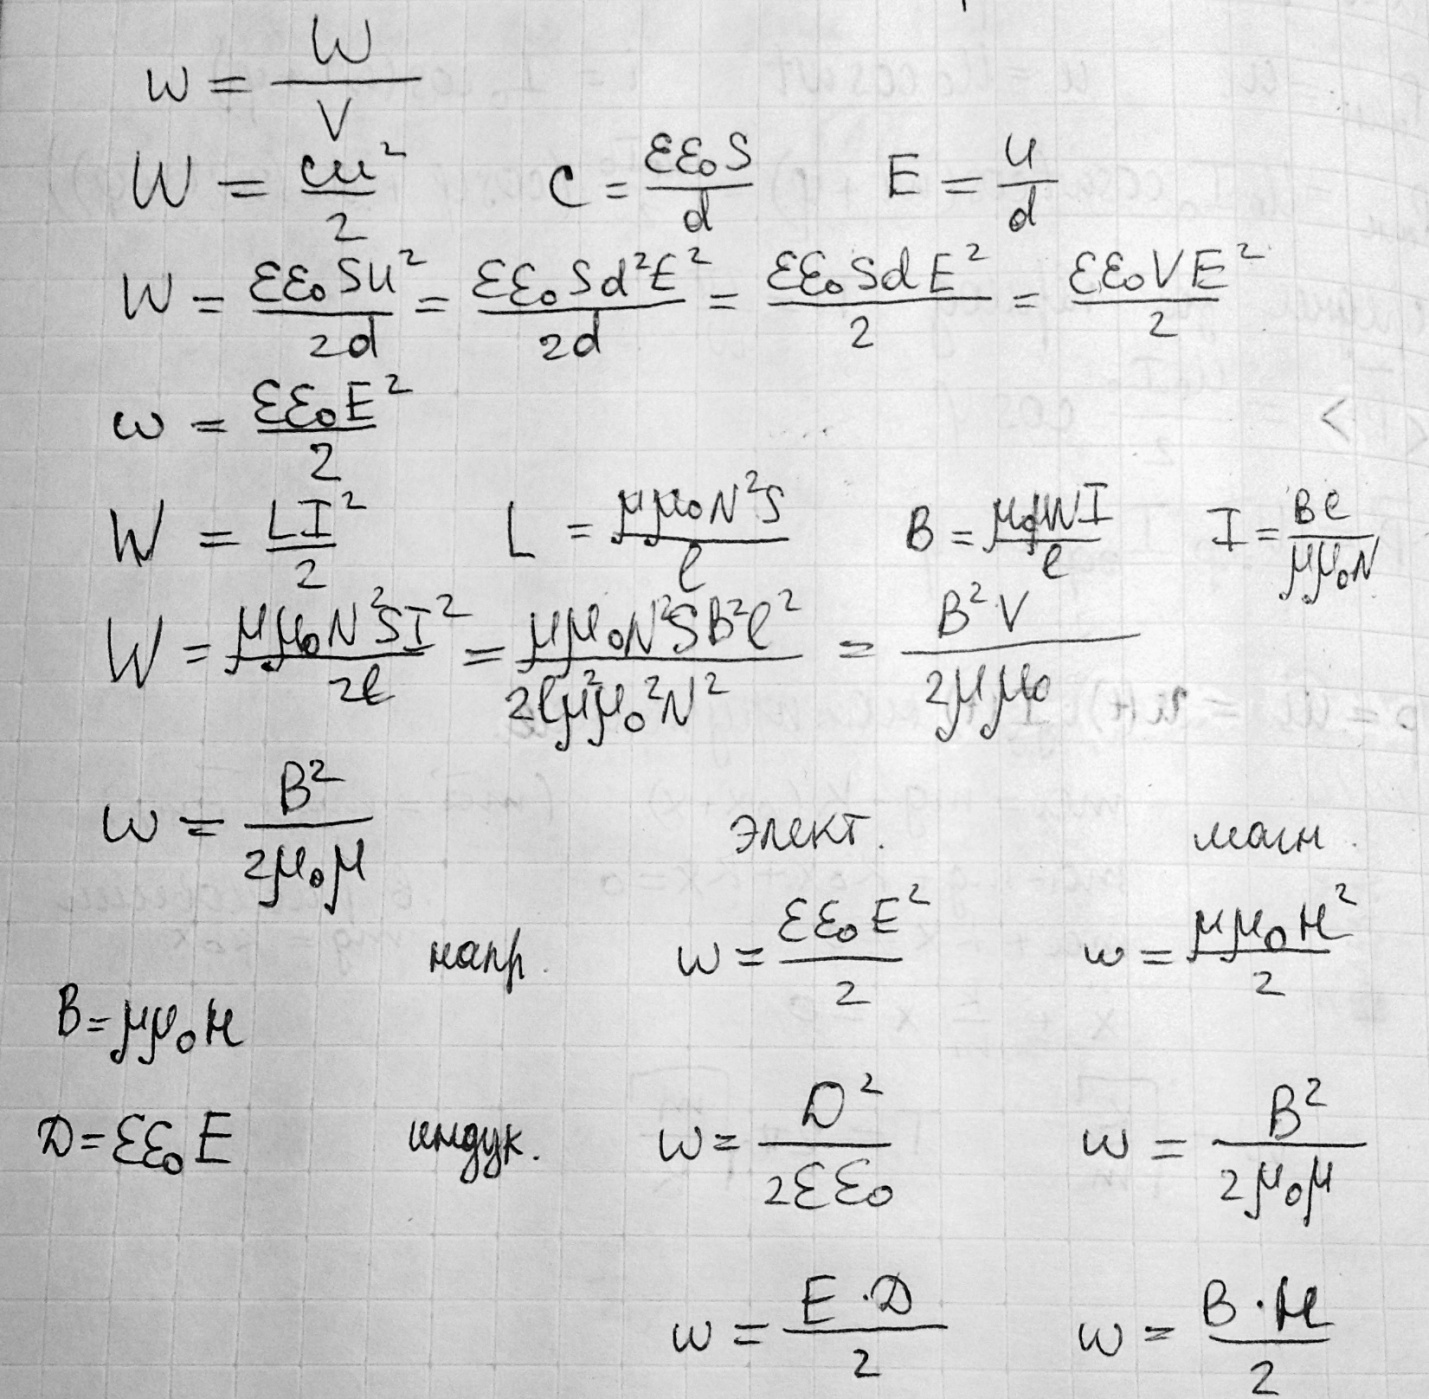 w = W/V
W = cu²/2 C = εε₀S/d E = u/d
W = εε₀Su²/2d = εε₀Sd²E²/2d = εε₀SdE²/2 = εε₀VE²/2
w = εε₀E²/2
W = LI²/2 L = μμ₀N²S/l B = μ₀μNI/l I = Bl/μμ₀N
W = μμ₀N²SI²/2l = μμ₀N²SB²l²/2lμ²μ₀²N² = B²V/2μμ₀
w = B²/2μ₀μ
элект. магн.
напр. w = εε₀E²/2 w = μμ₀H²/2
B = μμ₀H
D = εε₀E индук. w = D²/2εε₀ w = B²/2μ₀μ
w = E·D/2 w = B·H/2